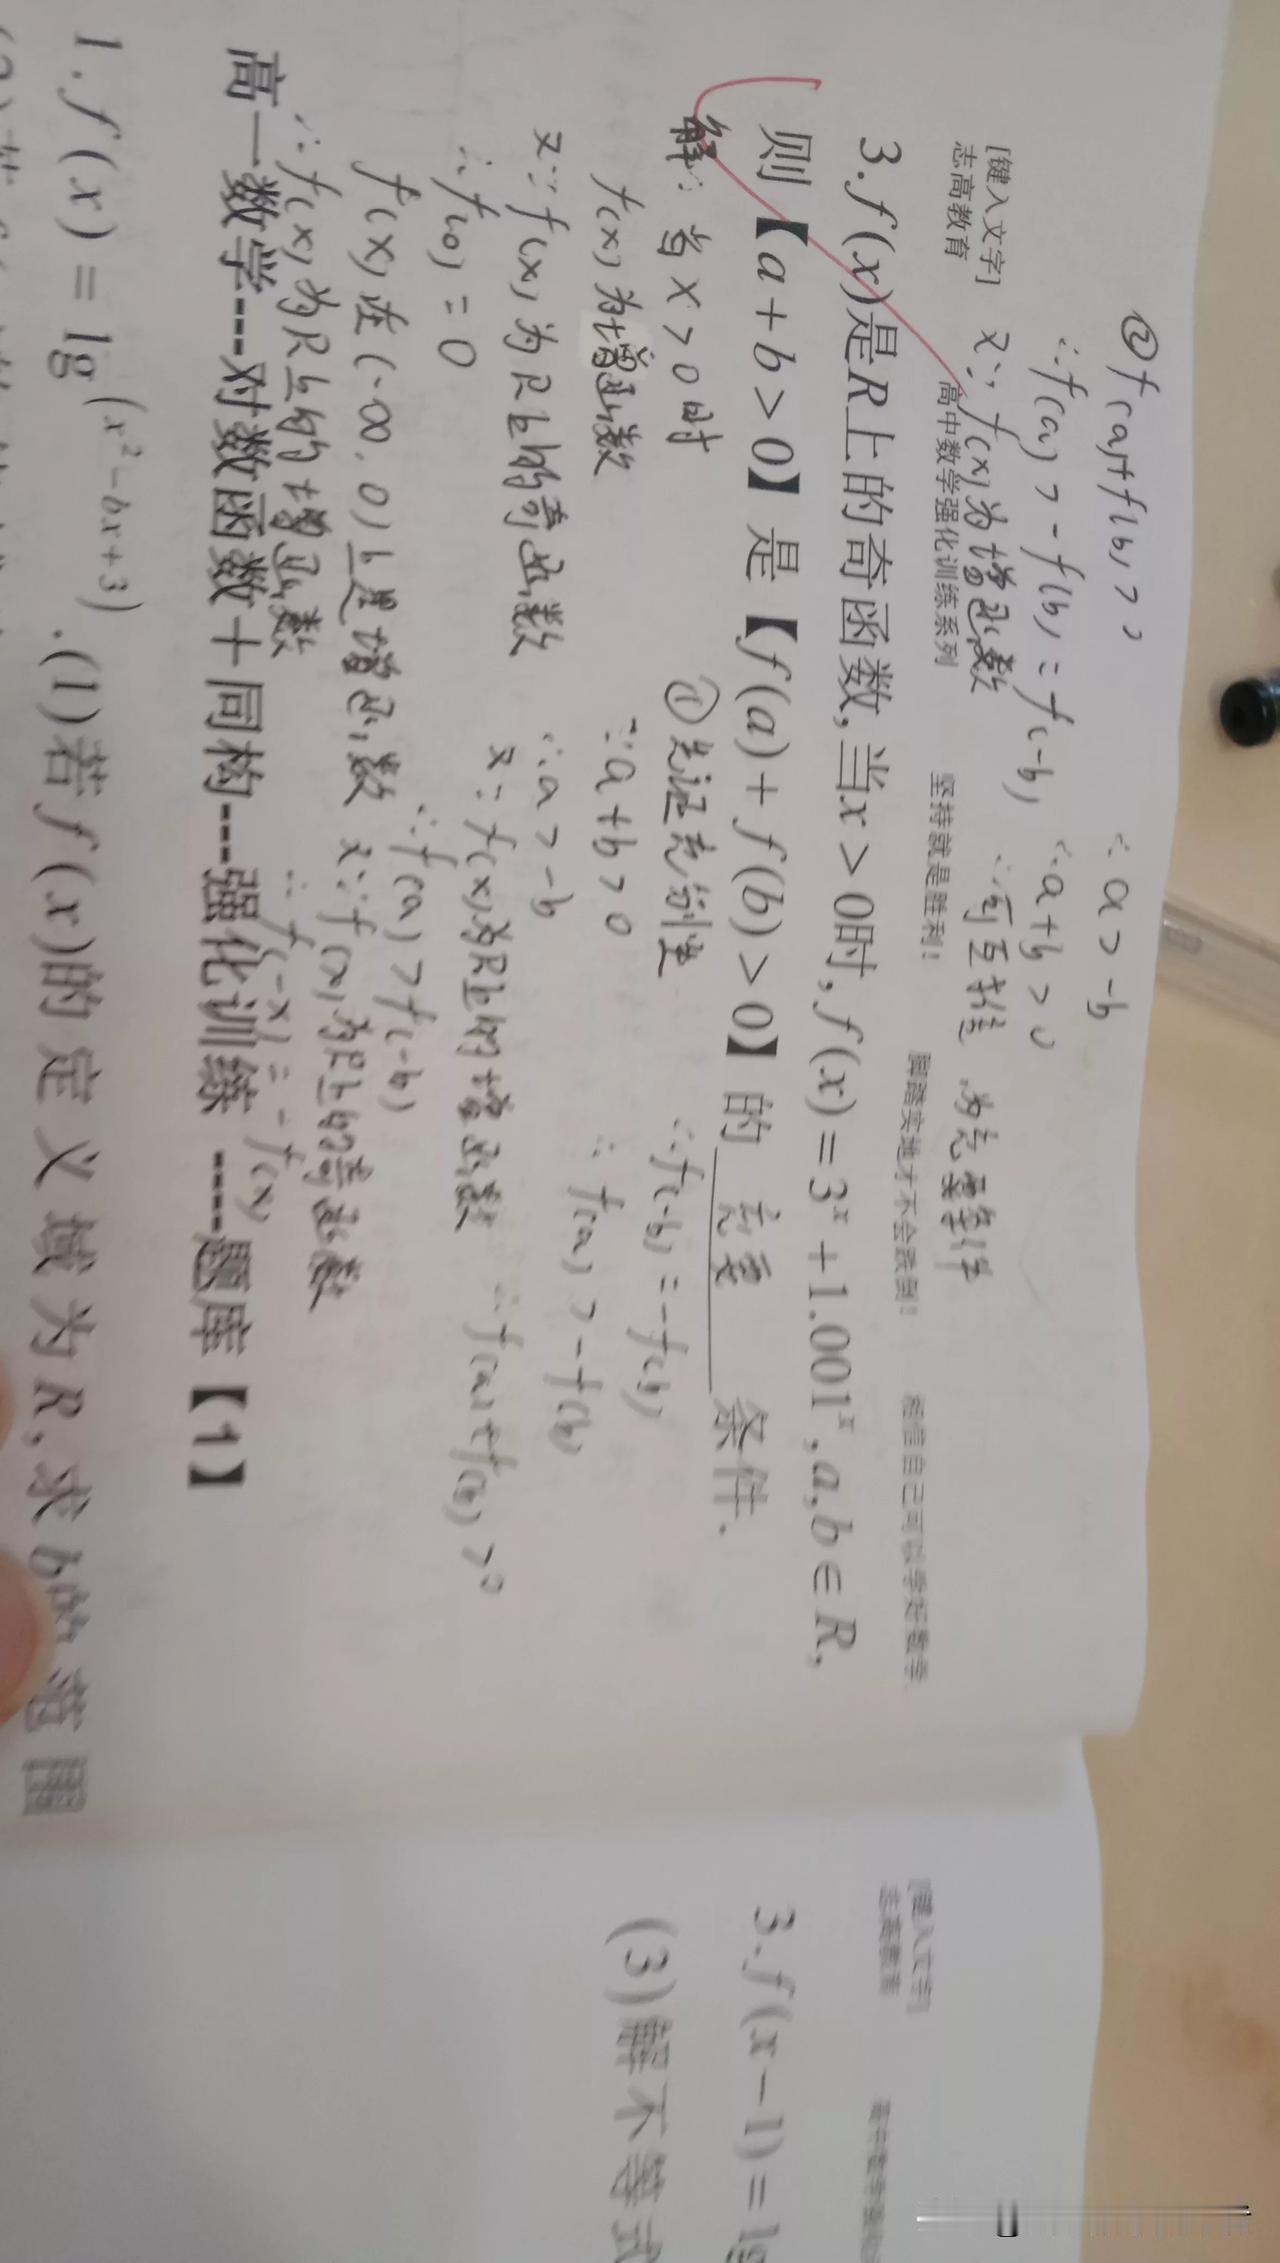 ②f(a)+f(b)>0
∴f(a)>-f(b)=f(-b)
又∵f(x)为增函数
∴a>-b
∴a+b>0
∴可互推,为充要条件
[键入文字]
志高教育 高中数学强化训练系列 坚持就是胜利! 脚踏实地才不会跌倒! 相信自己可以学好数学
3.f(x)是R上的奇函数,当x>0时,f(x)=3^x+1.001^x,a,b∈R,
则【a+b>0】是【f(a)+f(b)>0】的 充要 条件.
解:当x>0时
f(x)为增函数
又∵f(x)为R上的奇函数
∴f(0)=0
f(x)在(-∞,0)上是增函数
∴f(x)为R上的增函数
①先证充分性
∵a+b>0
∴a>-b
又∵f(x)为R上的增函数
∴f(a)>f(-b)
又∵f(x)为R上的奇函数
∴f(-x)=-f(x)
∴f(-b)=-f(b)
∴f(a)>-f(b)
∴f(a)+f(b)>0
高一数学---对数函数十同构---强化训练----题库【1】
1.f(x)=lg^(x²-bx+3).(1)若f(x)的定义域为R,求b的范围
[键入文字]
志高教育
3.f(x-1)=lg
(3)解不等式